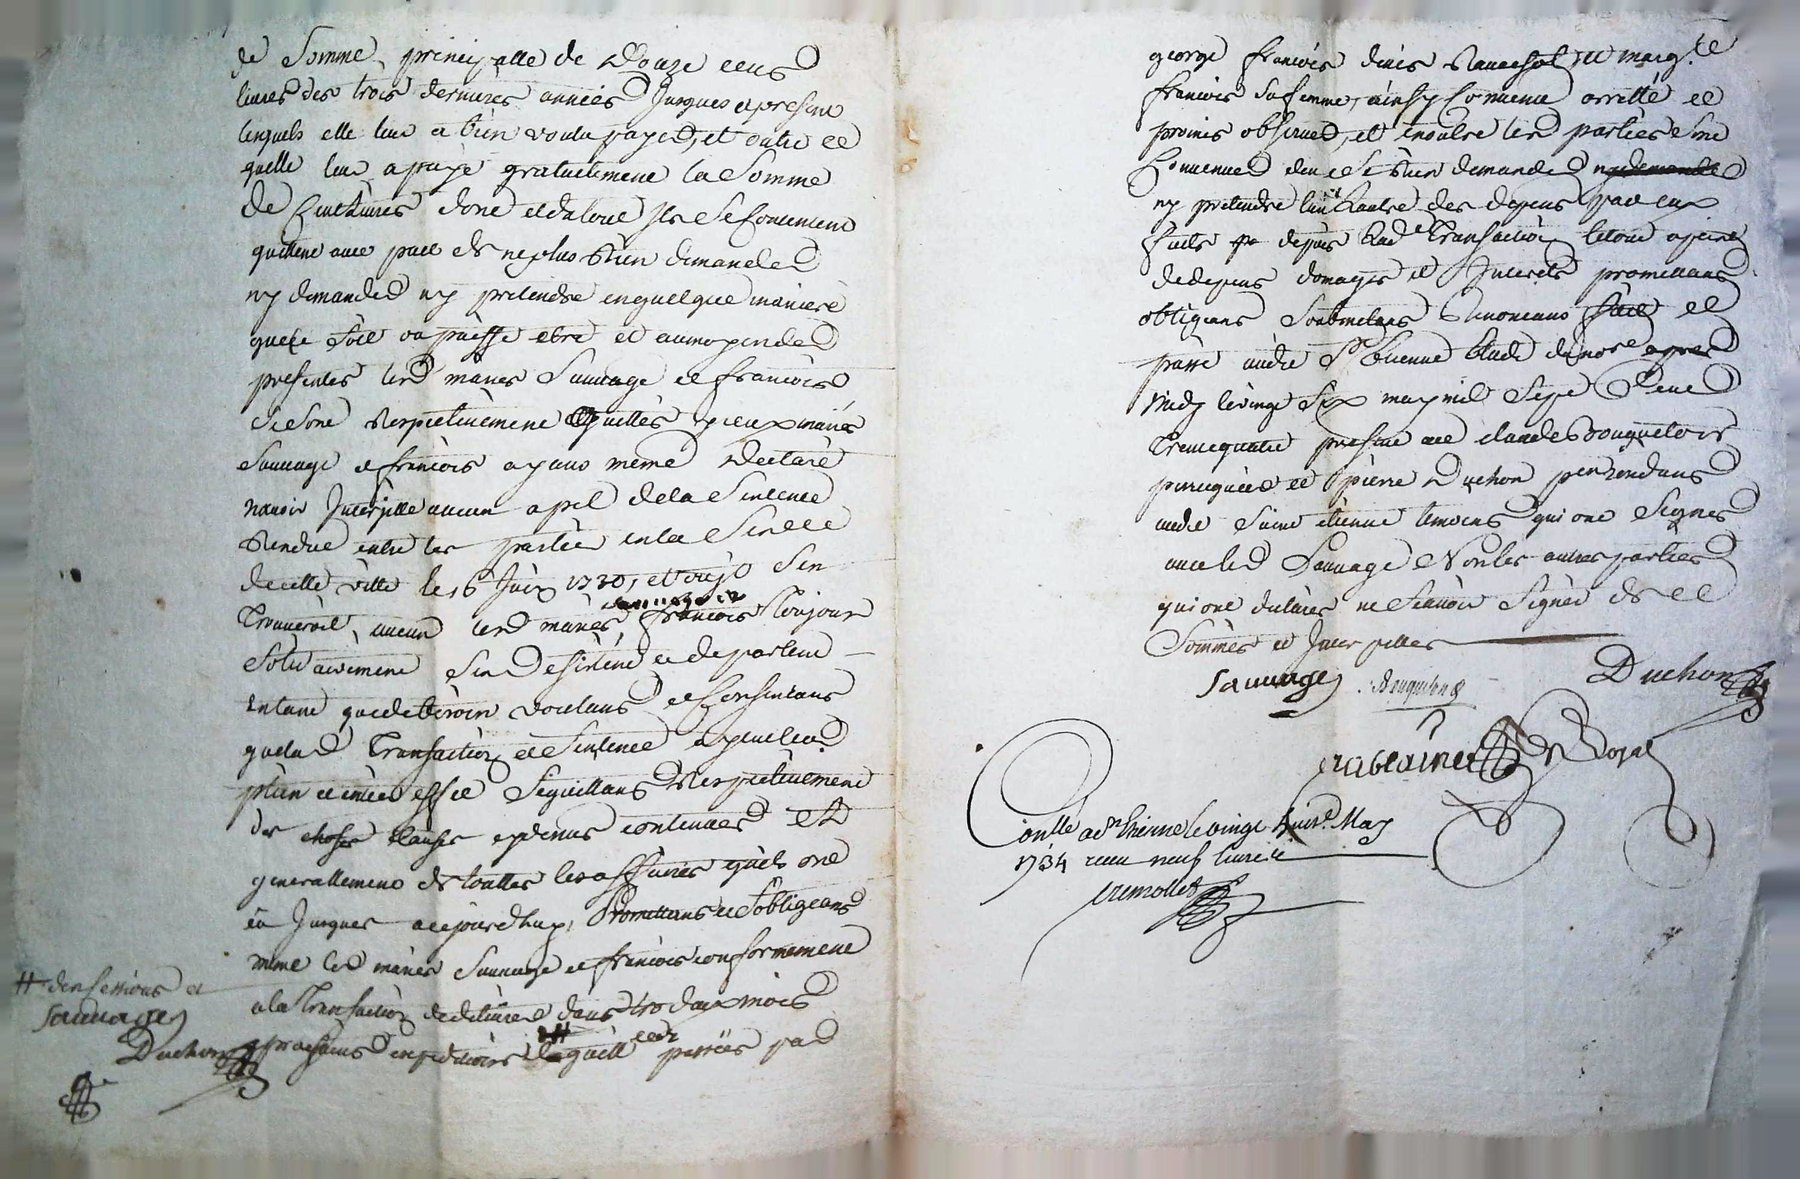 de Somme principalle de Douze cens
livres des trois dernieres années jusques apresent
lesquels elle leur a bien voulu payer, et outre ce
quelle leur a payé gratuitement la Somme
De Cent livres dont et du tout ils Se Contentent
quittent avec pact de ne plus Rien demander
ny demander ny pretendre en quelque maniere
que ce Soit ou puisse etre et au moyen des
presentes lesd mariés Sauvage et francois
Se Sont Respectivement Quittés iceux mariés
Sauvage et francois ayans meme Declaré
navoir Interjetté aucun apel de la Sentence
Rendue entre les parties en la
de cette ville le 6 Juin 1730, et ou jl S'en
Trouveroit aucun lesd mariés Sauvage et francois Toujour
Solidairement S'en desistent et departent
entant que de besoin voulans et Consentans
que lad Transaction et Sentence ayent leur
plain et entier effet Se quittans Respectivement
des choses clauses
generallement de touttes les affaires quils ont
eu Jusques a cejourdhuy, Promettans et Sobligeans
meme lesd mariés Sauvage et francois conformement
a la Transaction de delivrer dans deux mois
prochains expeditoires # passées par
# des Cessions et
Sauvage
Duchon
george francois denis et marg.te
francois Sa femme, ainsy Convenu arretté et
promis observer, et en outre lesd parties Sont
Convenues de ne Se Rien demander ny demander
ny pretendre lun a Lautre des depens par eux
faits depuis Lad.e Transaction le tout a peine
de depens domages et Interets promettans
obligeans Soubmetans Renoncans et
passé audit S.t Etienne Etude du no.re apres
midy le vingt Six may mil Sept Cent
Trentequatre present
peruquier et pierre Duchon
audit Saint etienne temoins qui ont Signés
avec led Sauvage Non les autres parties
qui ont declarés ne Scavoir Signer de ce
Sommés et Interpellés
Sauvage
Duchon
Conllé a S.t Etienne le vingt huit.e May
1734 receu neuf livres